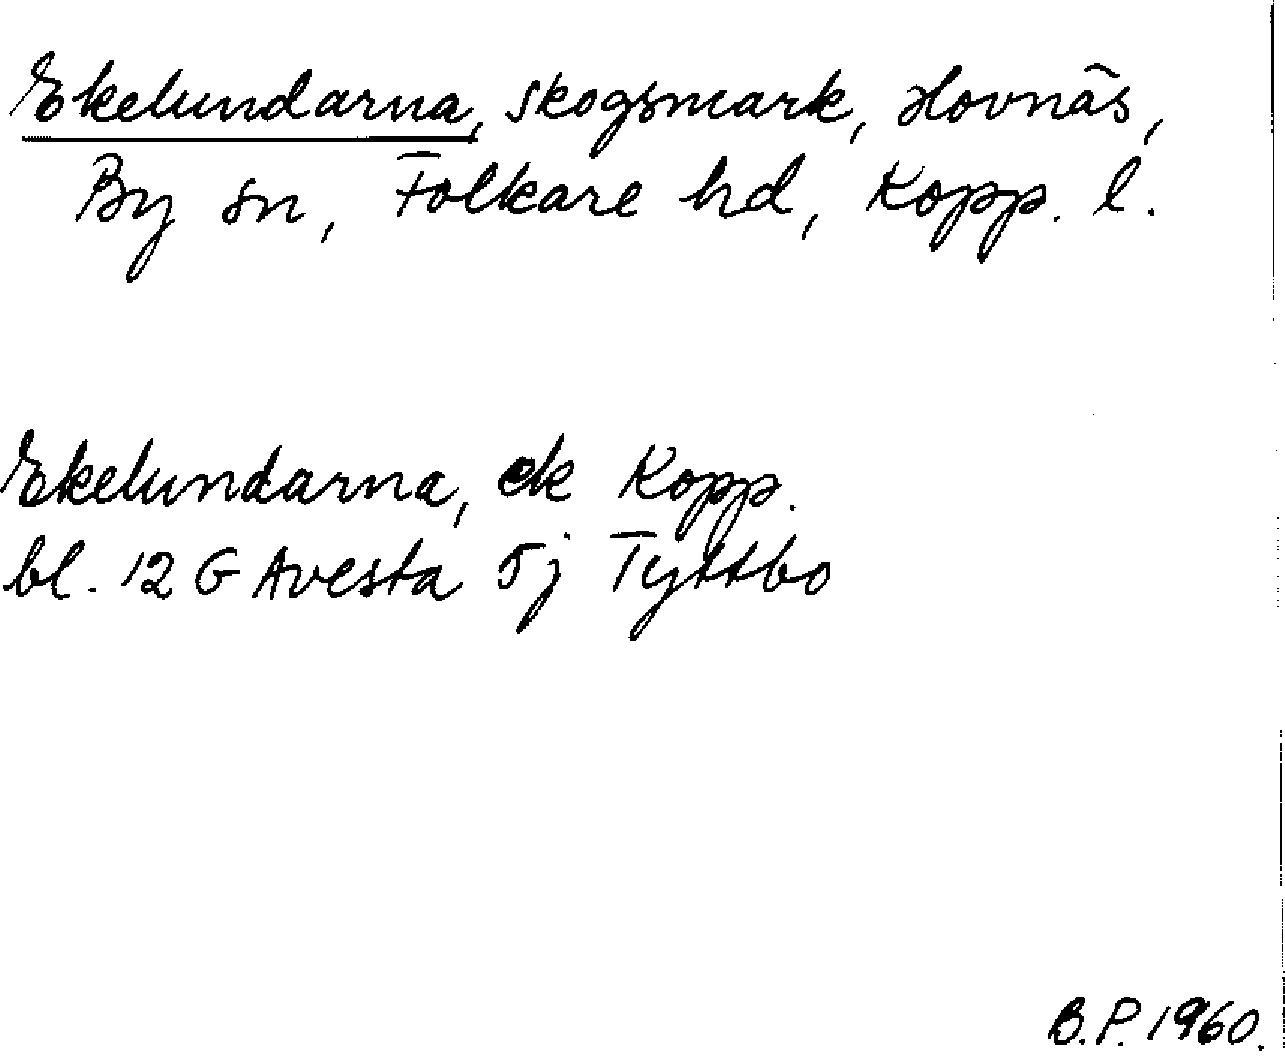 Ekelundarna, skogsmark, Hovnäs,
By sn, Folkare hd, Kopp. l.
Ekelundarna, ek Kopp.
bl. 12 G Avesta 5j Tyttbo
B.P. 1960.